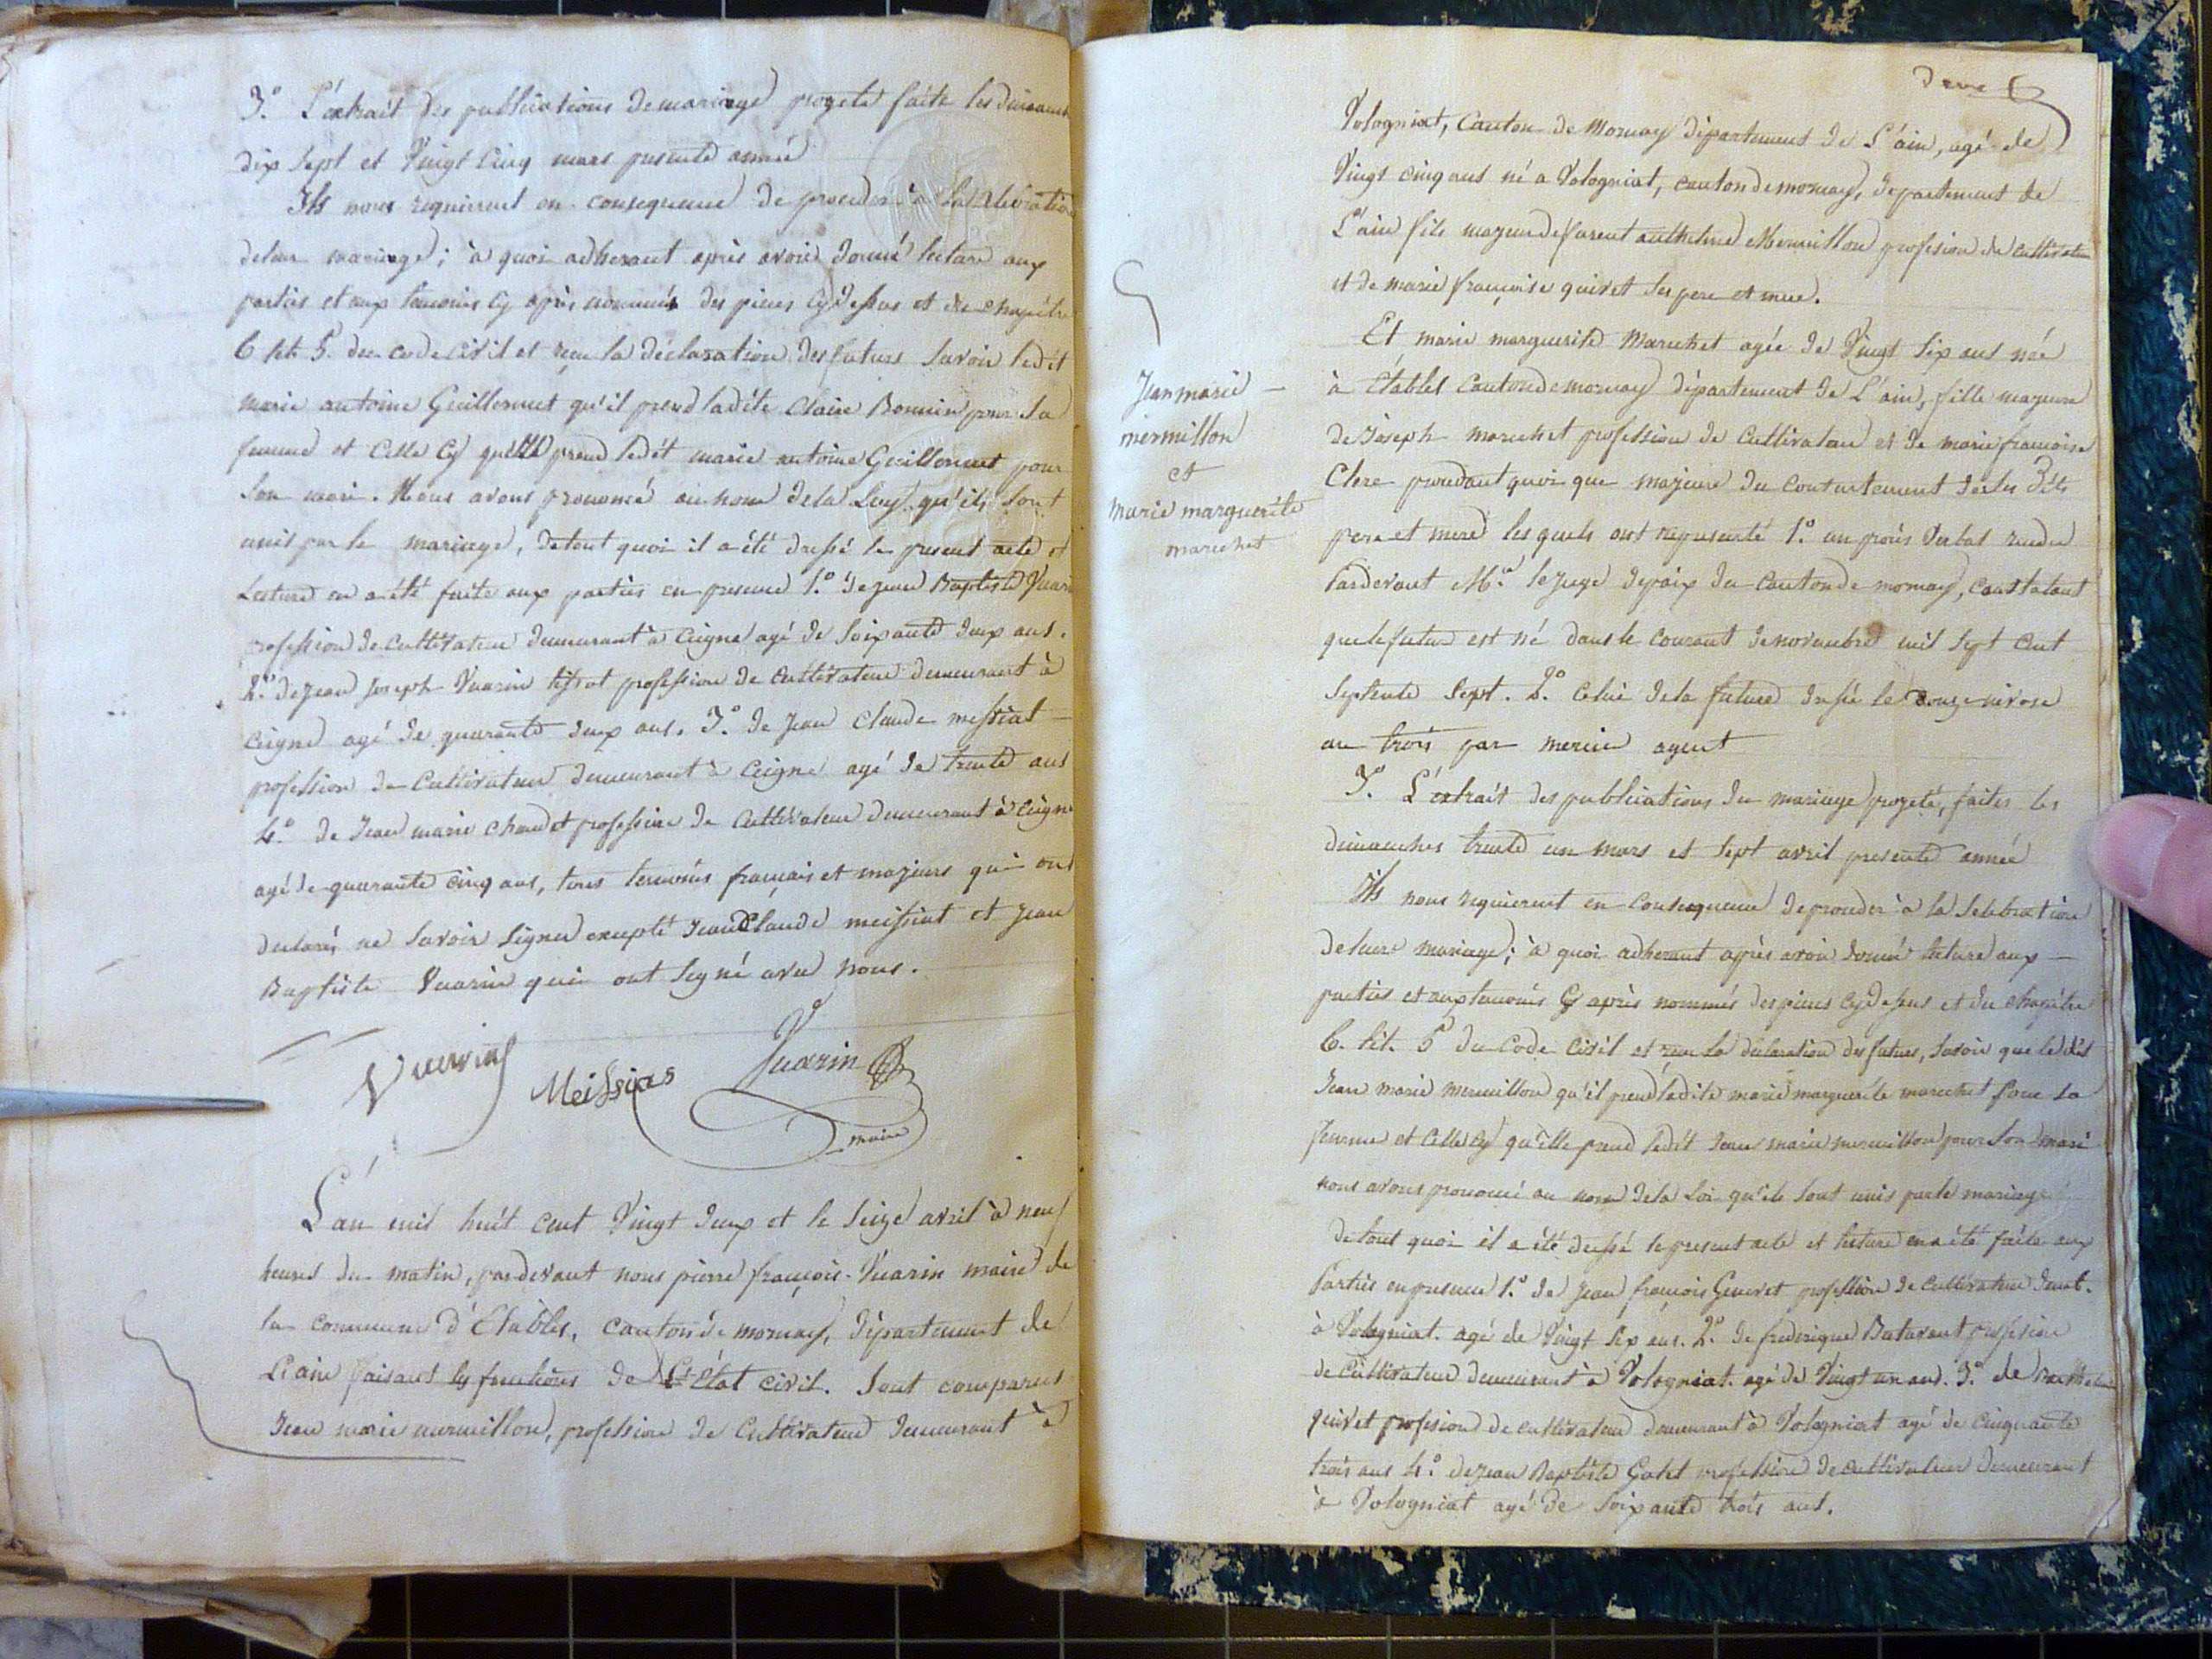 3.° L'extrait des publications de mariage projeté faite les dimanches
dix sept et Vingt Cinq mars presente année
Ils nous requierent en consequence de proceder à la Celebration
de leur mariage; à quoi adherant après avoir donné lecture aux
parties et aux temoins cy après nommés des pieces cy dessus et du chapitre
6 tit. 5. du code civil et reçu la déclaration des futurs Savoir ledit
marie antoine Guillermet qu'il prend ladite Claire Bonnin pour Sa
femme et Celle Cy qu'elle prend ledit marie antoine Guillermet pour
Son mari. Nous avons prononcé au nom de la Loy qu'ils Sont
unis par le mariage, de tout quoi il a été dressé le present acte et
Lecture en a été faite aux parties en presence 1.° de jean Baptiste Vuarin
profession de Cultivateur demeurant à Ceigne agé de Soixante deux ans.
2.° de jean joseph Vuarin profession de Cultivateur demeurant à
Ceigne agé de quarante deux ans. 3.° de Jean Claude messiat
profession de Cultivateur demeurant à Ceigne agé de trente ans
4.° de Jean marie chaudet profession de Cultivateur demeurant à Ceigne
agé de quarante cinq ans, tous temoins français et majeurs qui ont
declarés ne Savoir Signer excepté Jean Claude meissiat et Jean
Baptiste Vuarin qui ont Signé avec nous.
Vuarin Meissias Vuarin
maire
L'an mil huit cent Vingt deux et le Seize avril à neuf
heures du matin, par devant nous pierre françois Vuarin maire de
la commune d'Etables, canton de mornay, département de
L'ain faisant les fonctions de L'état civil. Sont comparus
Jean marie mermillon, profession de Cultivateur demeurant à
Volognat, Canton de Mornay département de L'ain, agé de
Vingt cinq ans né a Volognat, canton de mornay, département de
L'ain fils majeur de anthelme Mermillon profession de cultivateur
et de marie françoise quivet Ses pere et mere.
Jean marie
mermillon
et
marie marguerite
marechet
Et marie marguerite Marechet agée de Vingt Six ans née
à Étables Canton de mornay département de L'ain, fille majeure
de Joseph marechet profession de Cultivateur et de marie françoise
Clerc procedant quoi que majeure du Consentement de ses dits
pere et mere les quels ont representé 1.° un procès Verbal rendu
Pardevant Mr. le juge de paix du Canton de mornay, constatant
que le futur est né dans le Courant de novembre mil Sept Cent
Septente Sept. 2.° Celui de la future dressé le douze nivose
an trois par mercier agent
3.° L'extrait des publications du mariage projeté, faites les
dimanches trente un mars et Sept avril presente année
Ils nous requierent en Consequence de proceder à la Selebration
de leur mariage; à quoi adherant après avoir donné lecture aux
parties et aux temoins Cy après nommés des pieces Cy dessus et du chapitre
6. tit. 5 du Code Civil et reçu la déclaration des futurs, Savoir que ledit
Jean marie mermillon qu'il prend ladite marie marguerite marechet pour Sa
femme et Celle Cy qu'elle prend ledit Jean marie mermillon pour Son mari
nous avons prononcé au nom de la Loi qu'ils Sont unis par le mariage
de tout quoi il a été dressé le present acte et lecture en a été faite aux
Parties en presence 1.° de Jean françois profession de Cultivateur demt.
à Volognat. agé de Vingt Six ans. 2.° de frederique Butavant profession
de Cultivateur demeurant à Volognat. agé de Vingt un ans. 3.° de
quivet profession de Cultivateur demeurant à Volognat agé de Cinquante
trois ans 4.° de jean Baptiste Galet profession de Cultivateur demeurant
à Volognat agé de Soixante trois ans.